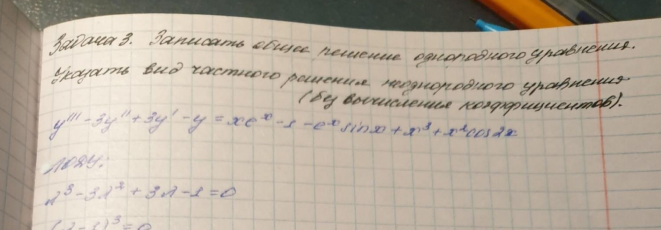 Задача 3. Записать общее решение однородного уравнения.
Указать вид частного решения неоднородного уравнения
(без вычисления коэффициентов).
y''' - 3y'' + 3y' - y = xeˣ - 1 - eˣ sinx + x³ + x² cos2x
ЛОДУ:
λ³ - 3λ² + 3λ - 1 = 0
(λ - 1)³ = 0